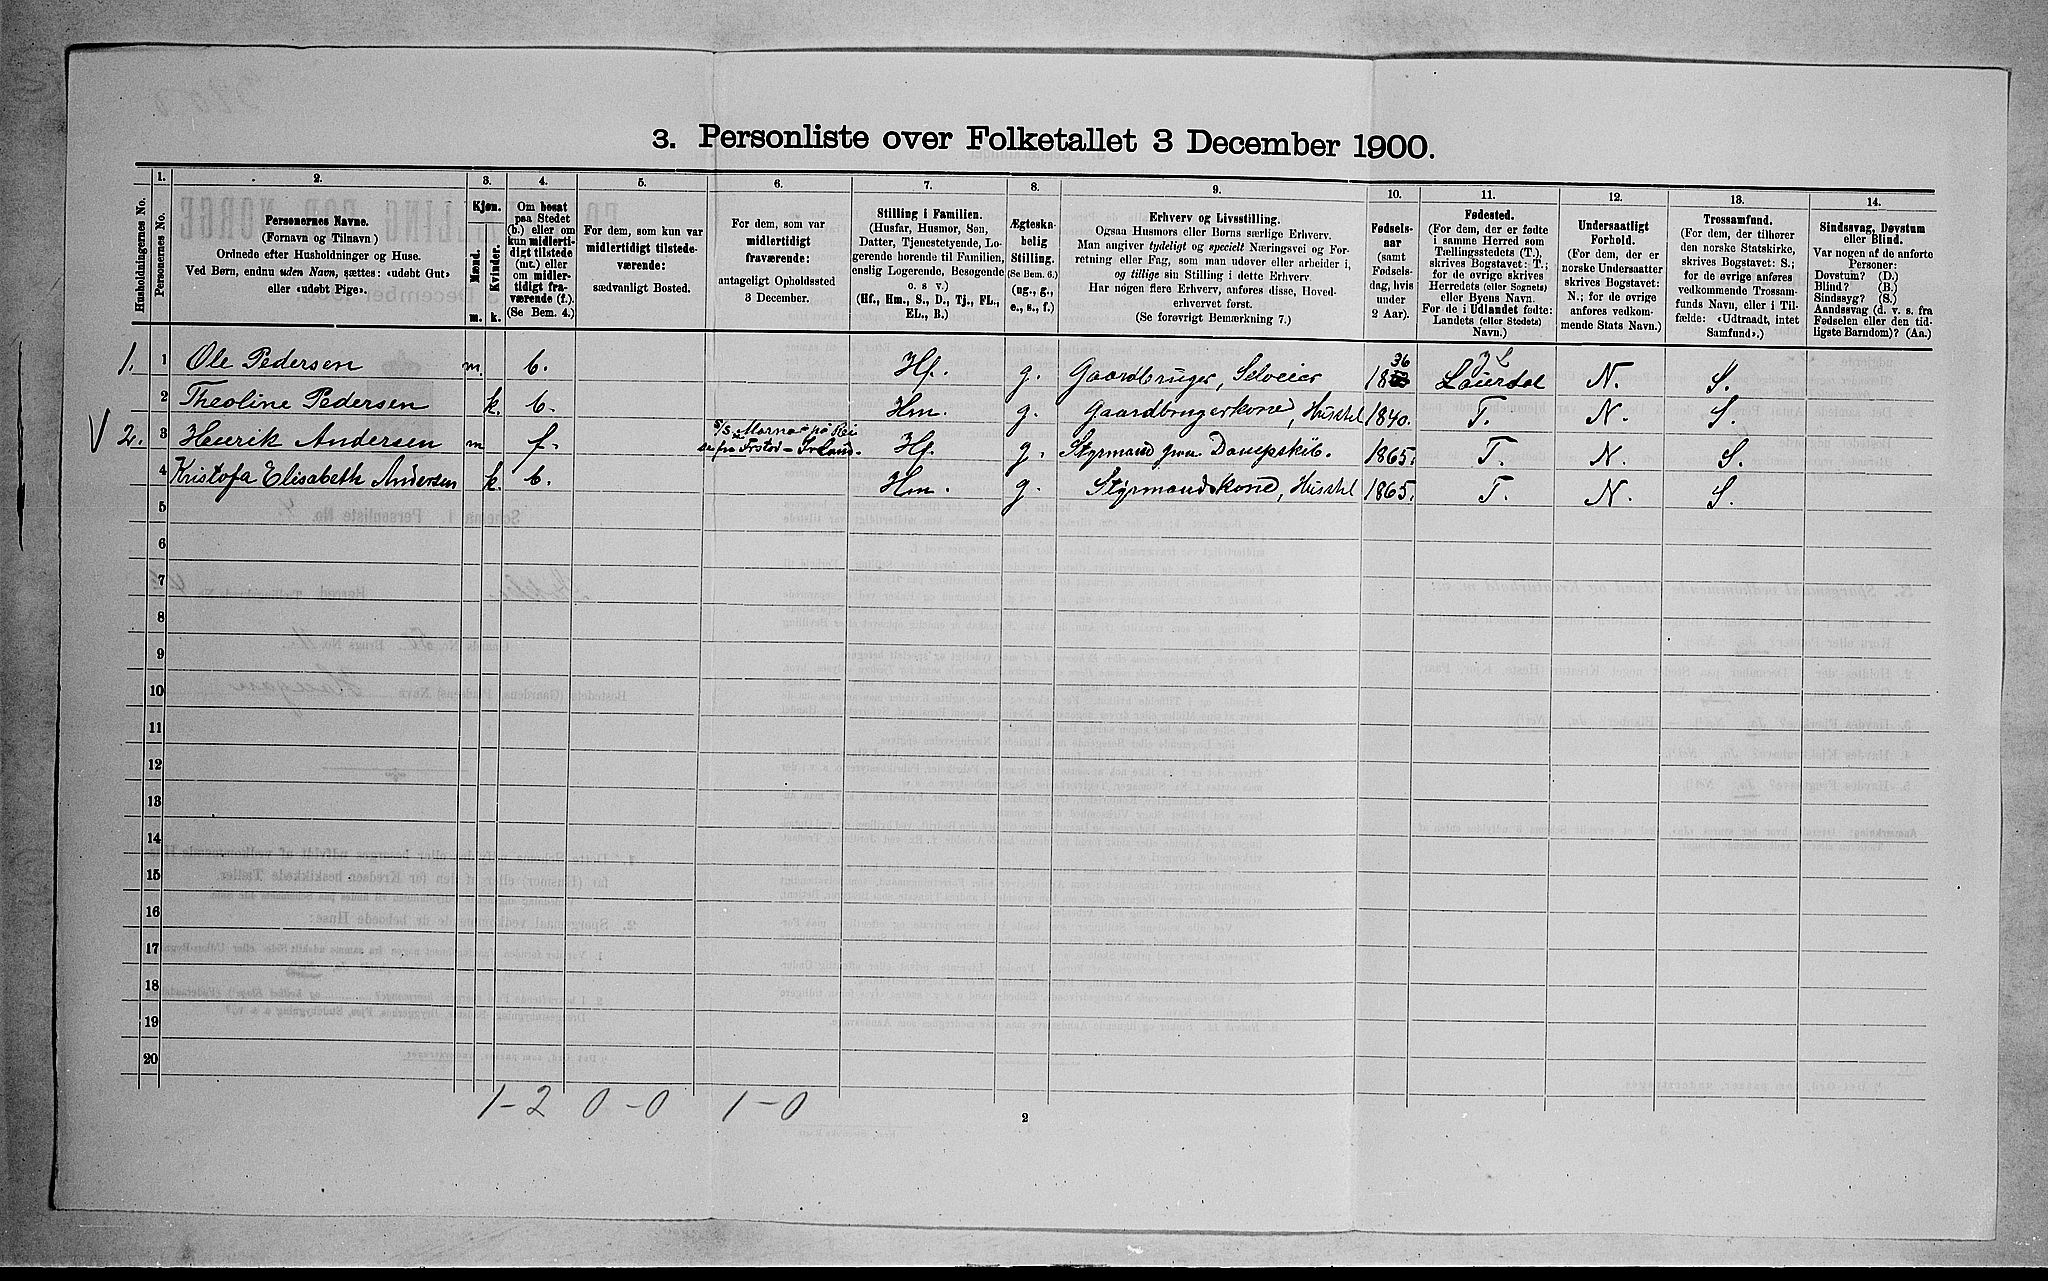 3. Personliste over Folketallet 3 December 1900.
1. 2. 3. 4. 5. 6. 7. 8. 9. 10. 11. 12. 13. 14.
Husholdningernes No.
Personernes No.
Personernes Navne.
(Fornavn og Tilnavn)
Ordnede efter Husholdninger og Huse.
Ved Børn, endnu uden Navn, sættes: «udøbt Gut»
eller «udøbt Pige».
Kjøn.
Mænd.
Kvinder.
m. k.
Om bosat
paa Stedet
(b.) eller om
kun midlerti-
digt tilstede
(mt.) eller
om midler-
tidigt fra-
værende (f.).
(Se Bem. 4.)
For dem, som kun var
midlertidigt tilstede-
værende:
sædvanligt Bosted.
For dem, som var
midlertidigt
fraværende:
antageligt Opholdssted
3 December.
Stilling i Familien.
(Husfar, Husmor, Søn,
Datter, Tjenestetyende, Lo-
gerende hørende til Familien,
enslig Logerende, Besøgende
o. s v.)
(Hf., Hm., S., D., Tj., FL.,
EL., B.)
Ægteska-
belig
Stilling.
(Se Bem. 6.)
(ug., g.,
e., s., f.)
Erhverv og Livsstilling.
Ogsaa Husmors eller Børns særlige Erhverv.
Man angiver tydeligt og specielt Næringsvei og For-
retning eller Fag, som man udover eller arbeider i,
og tillige sin Stilling i dette Erhverv.
Har nogen flere Erhverv, anføres disse, Hoved-
erhvervet først.
(Se forøvrigt Bemærkning 7.)
Fødsels-
aar
(samt
Fødsels-
dag, hvis
under
2 Aar).
Fødested.
(For dem, der er fødte
i samme Herred som
Tællingsstedets (T.),
skrives Bogstavet: T.;
for de øvrige skrives
Herredets (eller Sognets)
eller Byens Navn.
For de i Udlandet fødte:
Landets (eller Stedets)
Navn.)
Undersaatligt
Forhold.
(For dem, der er
norske Undersaatter
skrives Bogstavet:
N.; for de øvrige
anføres vedkom-
mende Stats Navn.)
Trossamfund.
(For dem, der tilhører
den norske Statskirke,
skrives Bogstavet: S.;
for de øvrige anføres
vedkommende Trossam-
funds Navn, eller i Til-
fælde: «Udtraadt, intet
Samfund».)
Sindssvag, Døvstum
eller Blind.
Var nogen af de anførte
Personer:
Døvstum? (D.)
Blind? (B.)
Sindssyg? (S.)
Aandssvag (d. v. s. fra
Fødselen eller den tid-
ligste Barndom)? (Aa.)
1. 1 Ole Pedersen m. b. Hf. g. Gaardbruger, Selveier 1836 Laierdal N. S.
2 Theoline Pedersen k. b. Hm. g. Gaardbrugerkone, Husstel 1840. T. N. S.
2. 3 Henrik Andersen m f. S/S Morna på Rei Hf. g. Styrmand paa Dampskib. 1865. T. N. S.
4 Kristofa Elisabeth Andersen k. b. Hm. g. Styrmandskone, Husstel 1865. T. N. S.
5
6
7
8
9
10
11
12
13
14
15
16
17
18
19
20
1-2 0-0 1-0
2